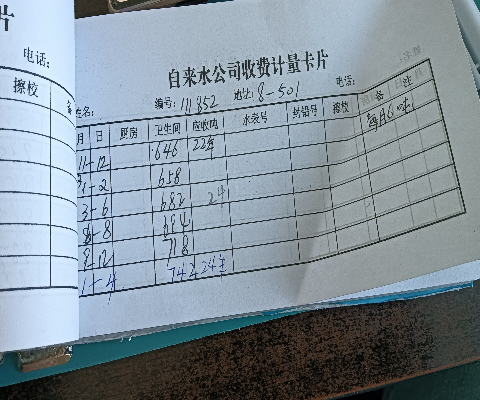 片
电话:
擦校
自来水公司收费计量卡片
姓名: 编号: 111852 地址: 8-501 电话:
月 日 厨房 卫生间 应收吨 水表号 封铅号 擦校 备 注
11-12 646 22年 每月6吨
658
3-6 682 24
8-8 694
9-12 718
1-4 742 24年